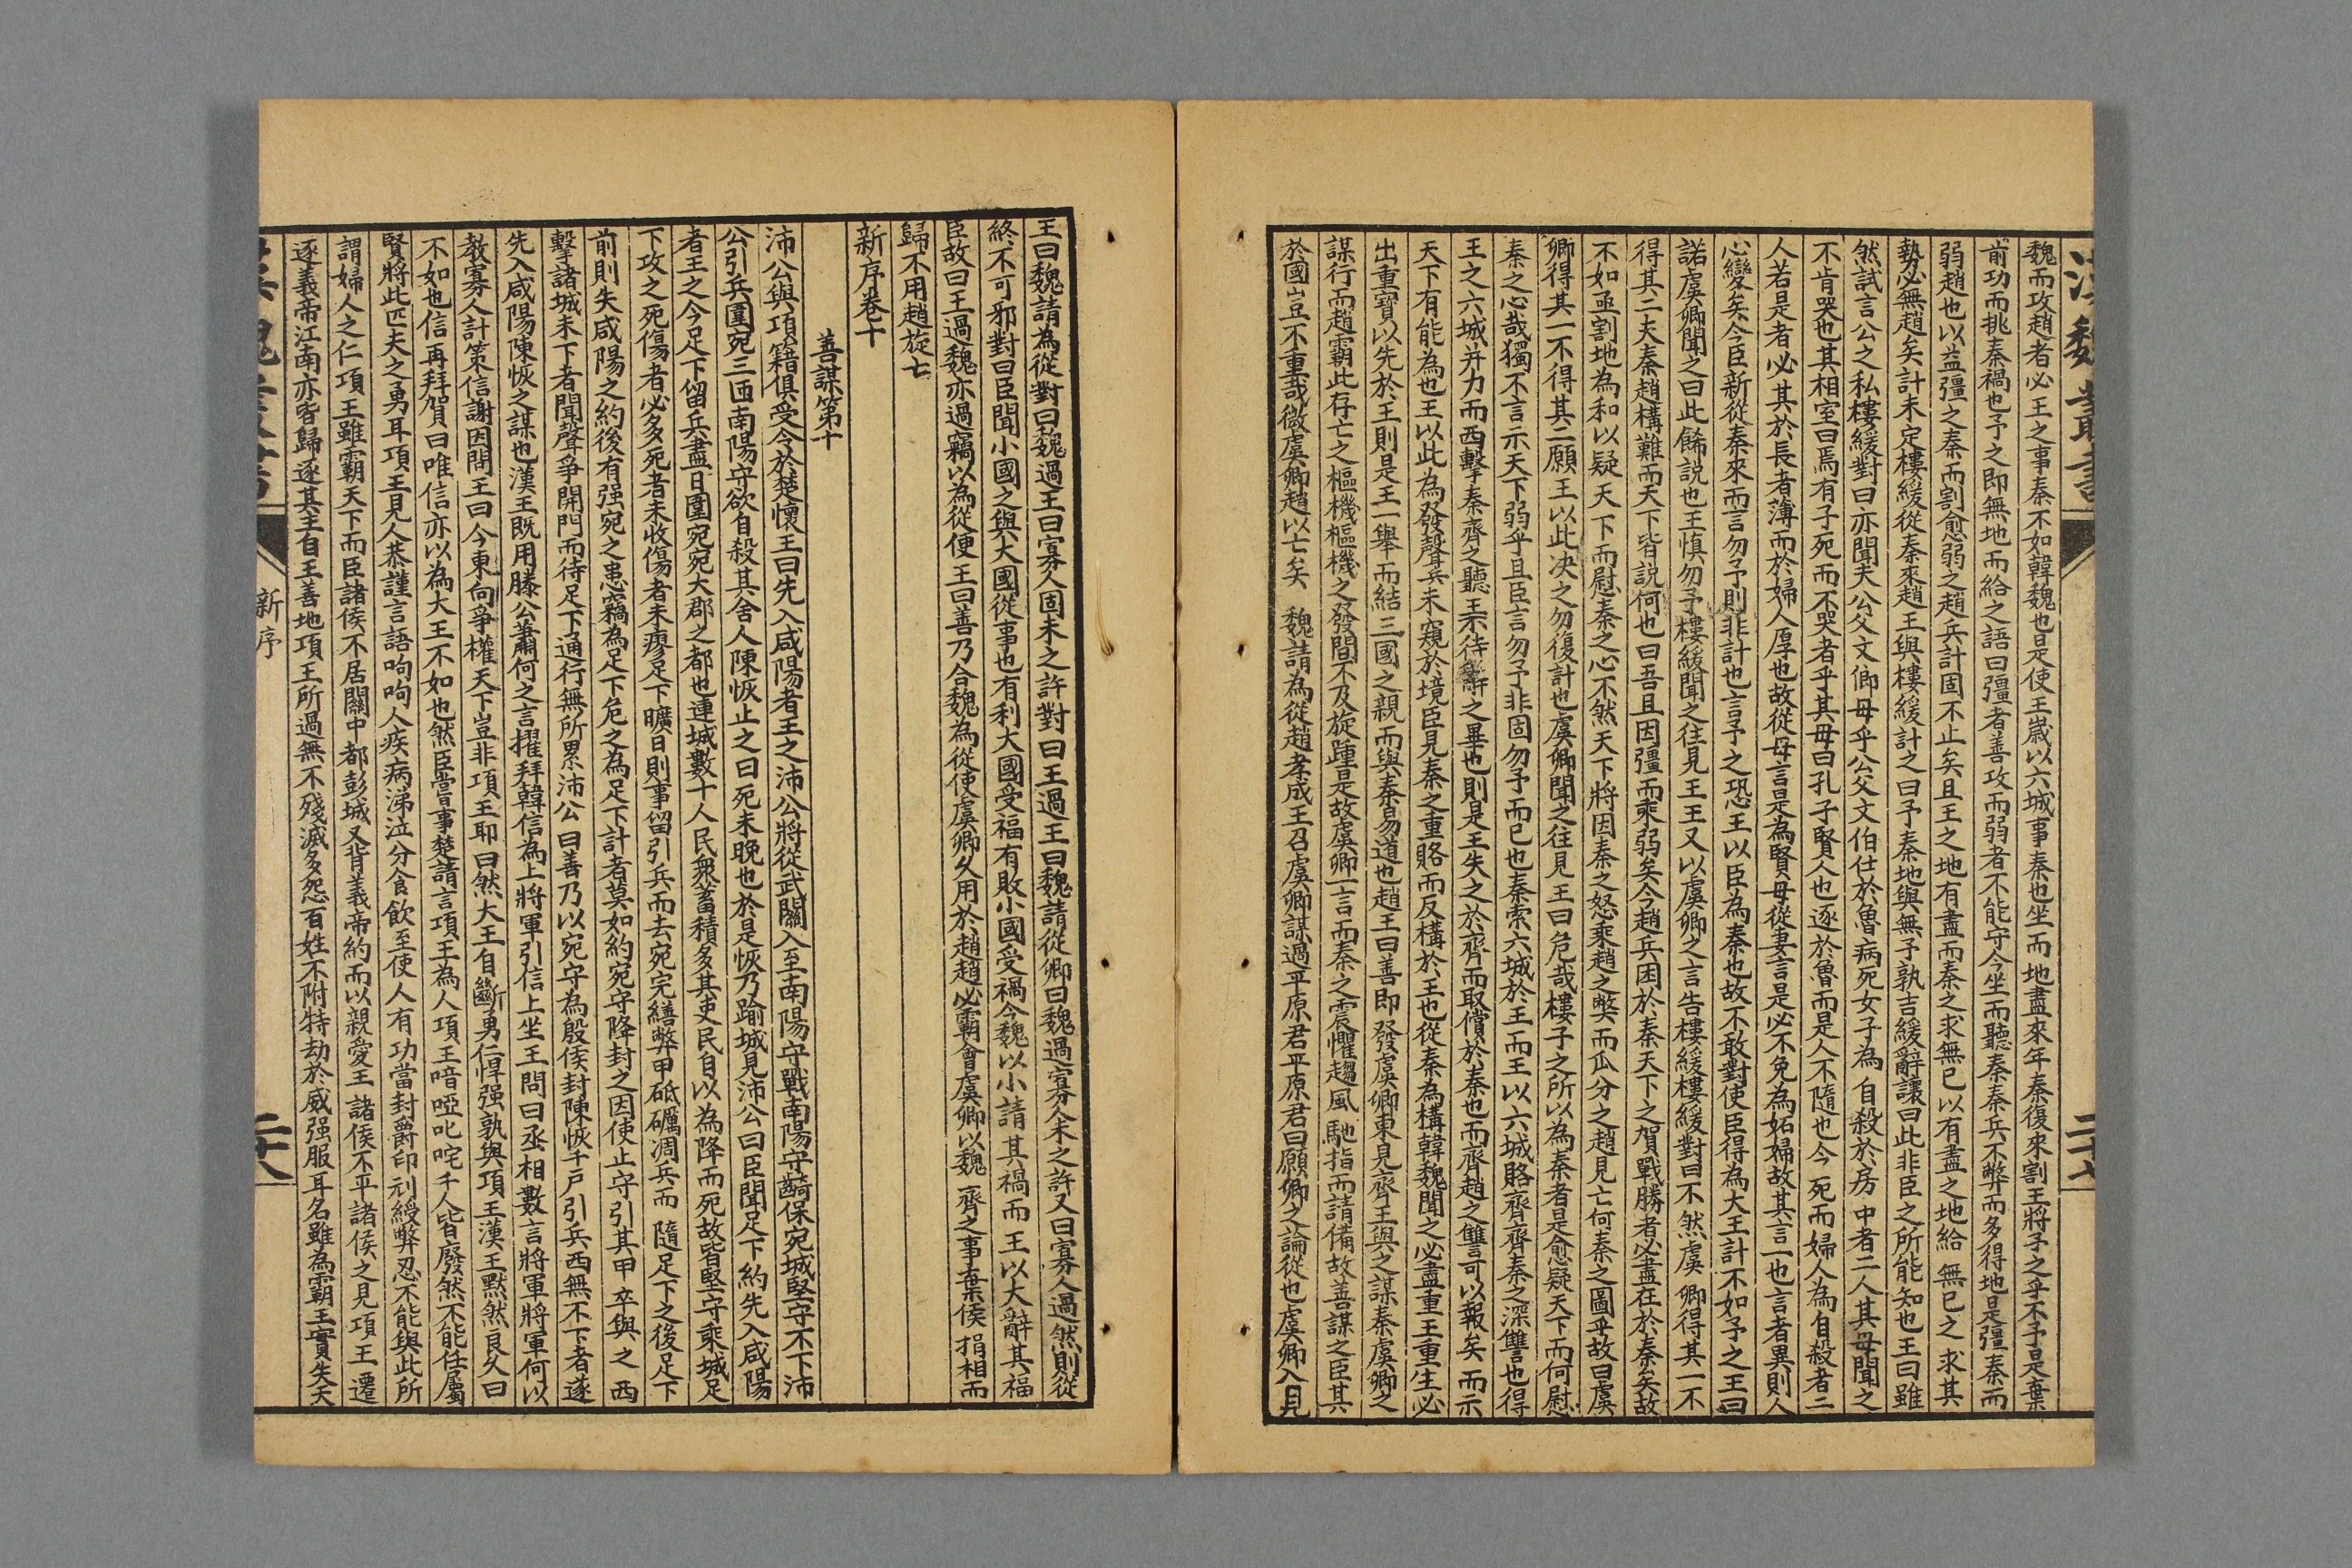 漢魏叢書
二十七
魏而攻趙者必王之事秦不如韓魏也是使王歲以六城事秦也坐而地盡來年秦復來割王將予之乎不予是棄
前功而挑秦禍也予之即無地而給之語曰彊者善攻而弱者不能守今坐而聽秦秦兵不弊而多得地是彊秦而
弱趙也以益彊之秦而割愈弱之趙兵計固不止矣且王之地有盡而秦之求無已以有盡之地給無已之求其
勢必無趙矣計未定樓緩從秦來趙王與樓緩計之曰予秦地與無予孰吉緩辭讓曰此非臣之所能知也王曰雖
然試言公之私樓緩對曰亦聞夫公父文伯母乎公父文伯仕於魯病死女子為自殺於房中者二人其母聞之
不肯哭也其相室曰焉有子死而不哭者乎其母曰孔子賢人也逐於魯而是人不隨也今死而婦人為自殺者二
人若是者必其於長者薄而於婦人厚也故從母言是為賢母從妻言是必不免為妬婦故其言一也言者異則人
心變矣今臣新從秦來而言勿予則非計也言予之恐王以臣為秦也故不敢對使臣得為大王計不如予之王曰
諾虞卿聞之曰此餙説也王慎勿予樓緩聞之往見王王又以虞卿之言告樓緩樓緩對曰不然虞卿得其一不
得其二夫秦趙構難而天下皆説何也曰吾且因彊而乘弱矣今趙兵困於秦天下之賀戰勝者必盡在於秦矣故
不如亟割地為和以疑天下而慰秦之心不然天下將因秦之怒乘趙之弊而瓜分之趙見亡何秦之圖乎故曰虞
卿得其一不得其二願王以此决之勿復計也虞卿聞之往見王曰危哉樓子之所以為秦者是愈疑天下而何慰
秦之心哉獨不言示天下弱乎且臣言勿予非固勿予而已也秦索六城於王而王以六城賂齊齊秦之深讐也得
王之六城并力而西擊秦齊之聽王不待辭之畢也則是王失之於齊而取償於秦也而齊趙之讐可以報矣而示
天下有能為也王以此為發聲兵未窺於境臣見秦之重賂而反構於王也從秦為構韓魏聞之必盡重王重生必
出重寶以先於王則是王一舉而結三國之親而與秦易道也趙王曰善即發虞卿東見齊王與之謀秦虞卿之
謀行而趙霸此存亡之樞機樞機之發間不及旋踵是故虞卿一言而秦之震懼趨風馳指而請備故善謀之臣其
於國豈不重哉微虞卿趙以亡矣 魏請為從趙孝成王召虞卿謀過平原君平原君曰願卿之論從也虞卿入見
王曰魏請為從對曰魏過王曰寡人固未之許對曰王過王曰魏請從卿曰魏過寡人未之許又曰寡人過然則從
終不可邪對曰臣聞小國之與大國從事也有利大國受福有敗小國受禍今魏以小請其禍而王以大辭其福
臣故曰王過魏亦過竊以為從便王曰善乃合魏為從使虞卿久用於趙趙必霸會虞卿以魏齊之事棄侯捐相而
歸不用趙旋亡
新序卷十
善謀第十
沛公與項籍俱受令於楚懷王曰先入咸陽者王之沛公將從武關入至南陽守戰南陽守齮保宛城堅守不下沛
公引兵圍宛三匝南陽守欲自殺其舍人陳恢止之曰死未晚也於是恢乃踰城見沛公曰臣聞足下約先入咸陽
者王之今足下留兵盡日圍宛宛大郡之都也連城數十人民衆蓄積多其吏民自以為降而死故皆堅守乘城足
下攻之死傷者必多死者未收傷者未瘳足下曠日則事留引兵而去宛完繕弊甲砥礪凋兵而隨足下之後足下
前則失咸陽之約後有强宛之患竊為足下危之為足下計者莫如約宛守降封之因使止守引其甲卒與之西
擊諸城未下者聞聲爭開門而待足下通行無所累沛公曰善乃以宛守為殷侯封陳恢千戸引兵西無不下者遂
先入咸陽陳恢之謀也漢王既用滕公蕭何之言擢拜韓信為上將軍引信上坐王問曰丞相數言將軍將軍何以
教寡人計策信謝因問王曰今東向爭權天下豈非項王耶曰然大王自斷勇仁悍强孰與項王漢王默然良久曰
不如也信再拜賀曰唯信亦以為大王不如也然臣嘗事楚請言項王為人項王喑啞叱咤千人皆廢然不能任屬
賢將此匹夫之勇耳項王見人恭謹言語呴呴人疾病涕泣分食飲至使人有功當封爵印刓綬弊忍不能與此所
謂婦人之仁項王雖霸天下而臣諸侯不居關中都彭城又背義帝約而以親愛王諸侯不平諸侯之見項王遷
逐義帝江南亦皆歸逐其主自王善地項王所過無不殘滅多怨百姓不附特劫於威强服耳名雖為霸王實失天
漢魏叢書
新序
二十八